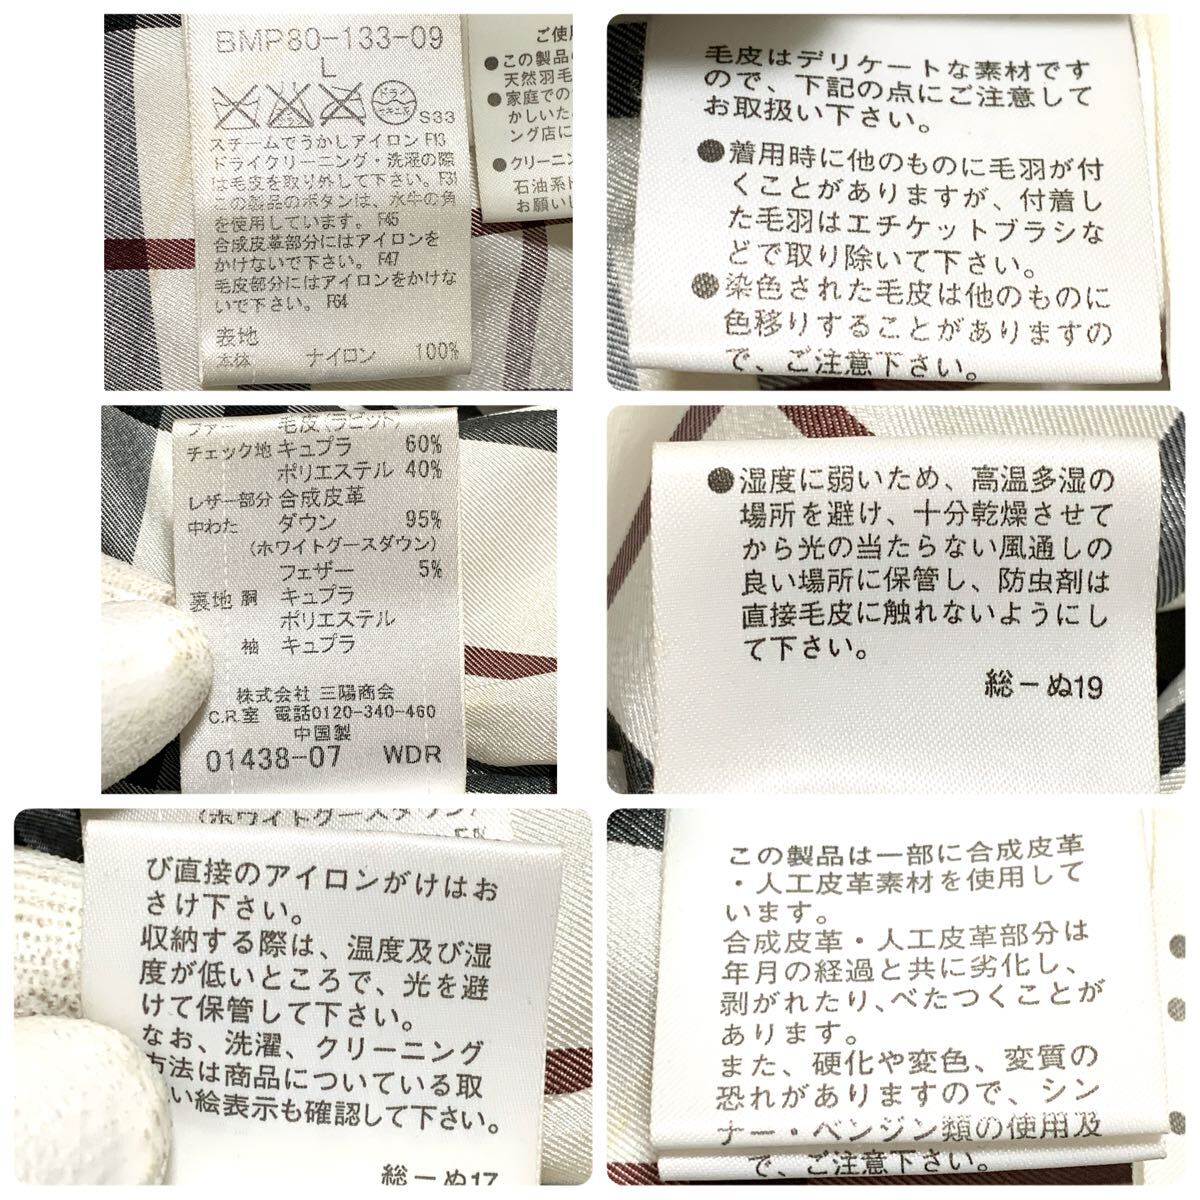 BMP80-133-09
L
ドライ
S33
スチームでうかしアイロン F13
ドライクリーニング・洗濯の際
は毛皮を取り外して下さい。F31
この製品のボタンは、水牛の角
を使用しています。F45
合成皮革部分にはアイロンを
かけないで下さい。F47
毛皮部分にはアイロンをかけな
いで下さい。F64
表地
本体 ナイロン 100%
ご使用
●この製品
天然羽毛
●家庭での
かしいた
ング店に
●クリーニン
石油系ド
お願いし
毛皮はデリケートな素材です
ので、下記の点にご注意して
お取扱い下さい。
●着用時に他のものに毛羽が付
くことがありますが、付着し
た毛羽はエチケットブラシな
どで取り除いて下さい。
●染色された毛皮は他のものに
色移りすることがありますの
で、ご注意下さい。
ファー 毛皮(ラビット)
チェック地 キュプラ 60%
ポリエステル 40%
レザー部分 合成皮革
中わた ダウン 95%
(ホワイトグースダウン)
フェザー 5%
裏地 胴 キュプラ
ポリエステル
袖 キュプラ
株式会社 三陽商会
C.R.室 電話0120-340-460
中国製
01438-07 WDR
●湿度に弱いため、高温多湿の
場所を避け、十分乾燥させて
から光の当たらない風通しの
良い場所に保管し、防虫剤は
直接毛皮に触れないようにし
て下さい。
総－ぬ19
(ホワイトグースダウン)
び直接のアイロンがけはお
さけ下さい。
収納する際は、温度及び湿
度が低いところで、光を避
けて保管して下さい。
なお、洗濯、クリーニング
方法は商品についている取
い絵表示も確認して下さい。
総－ぬ17
この製品は一部に合成皮革
・人工皮革素材を使用して
います。
合成皮革・人工皮革部分は
年月の経過と共に劣化し、
剥がれたり、べたつくことが
あります。
また、硬化や変色、変質の
恐れがありますので、シン
ナー・ベンジン類の使用及
で、ご注意下さい。